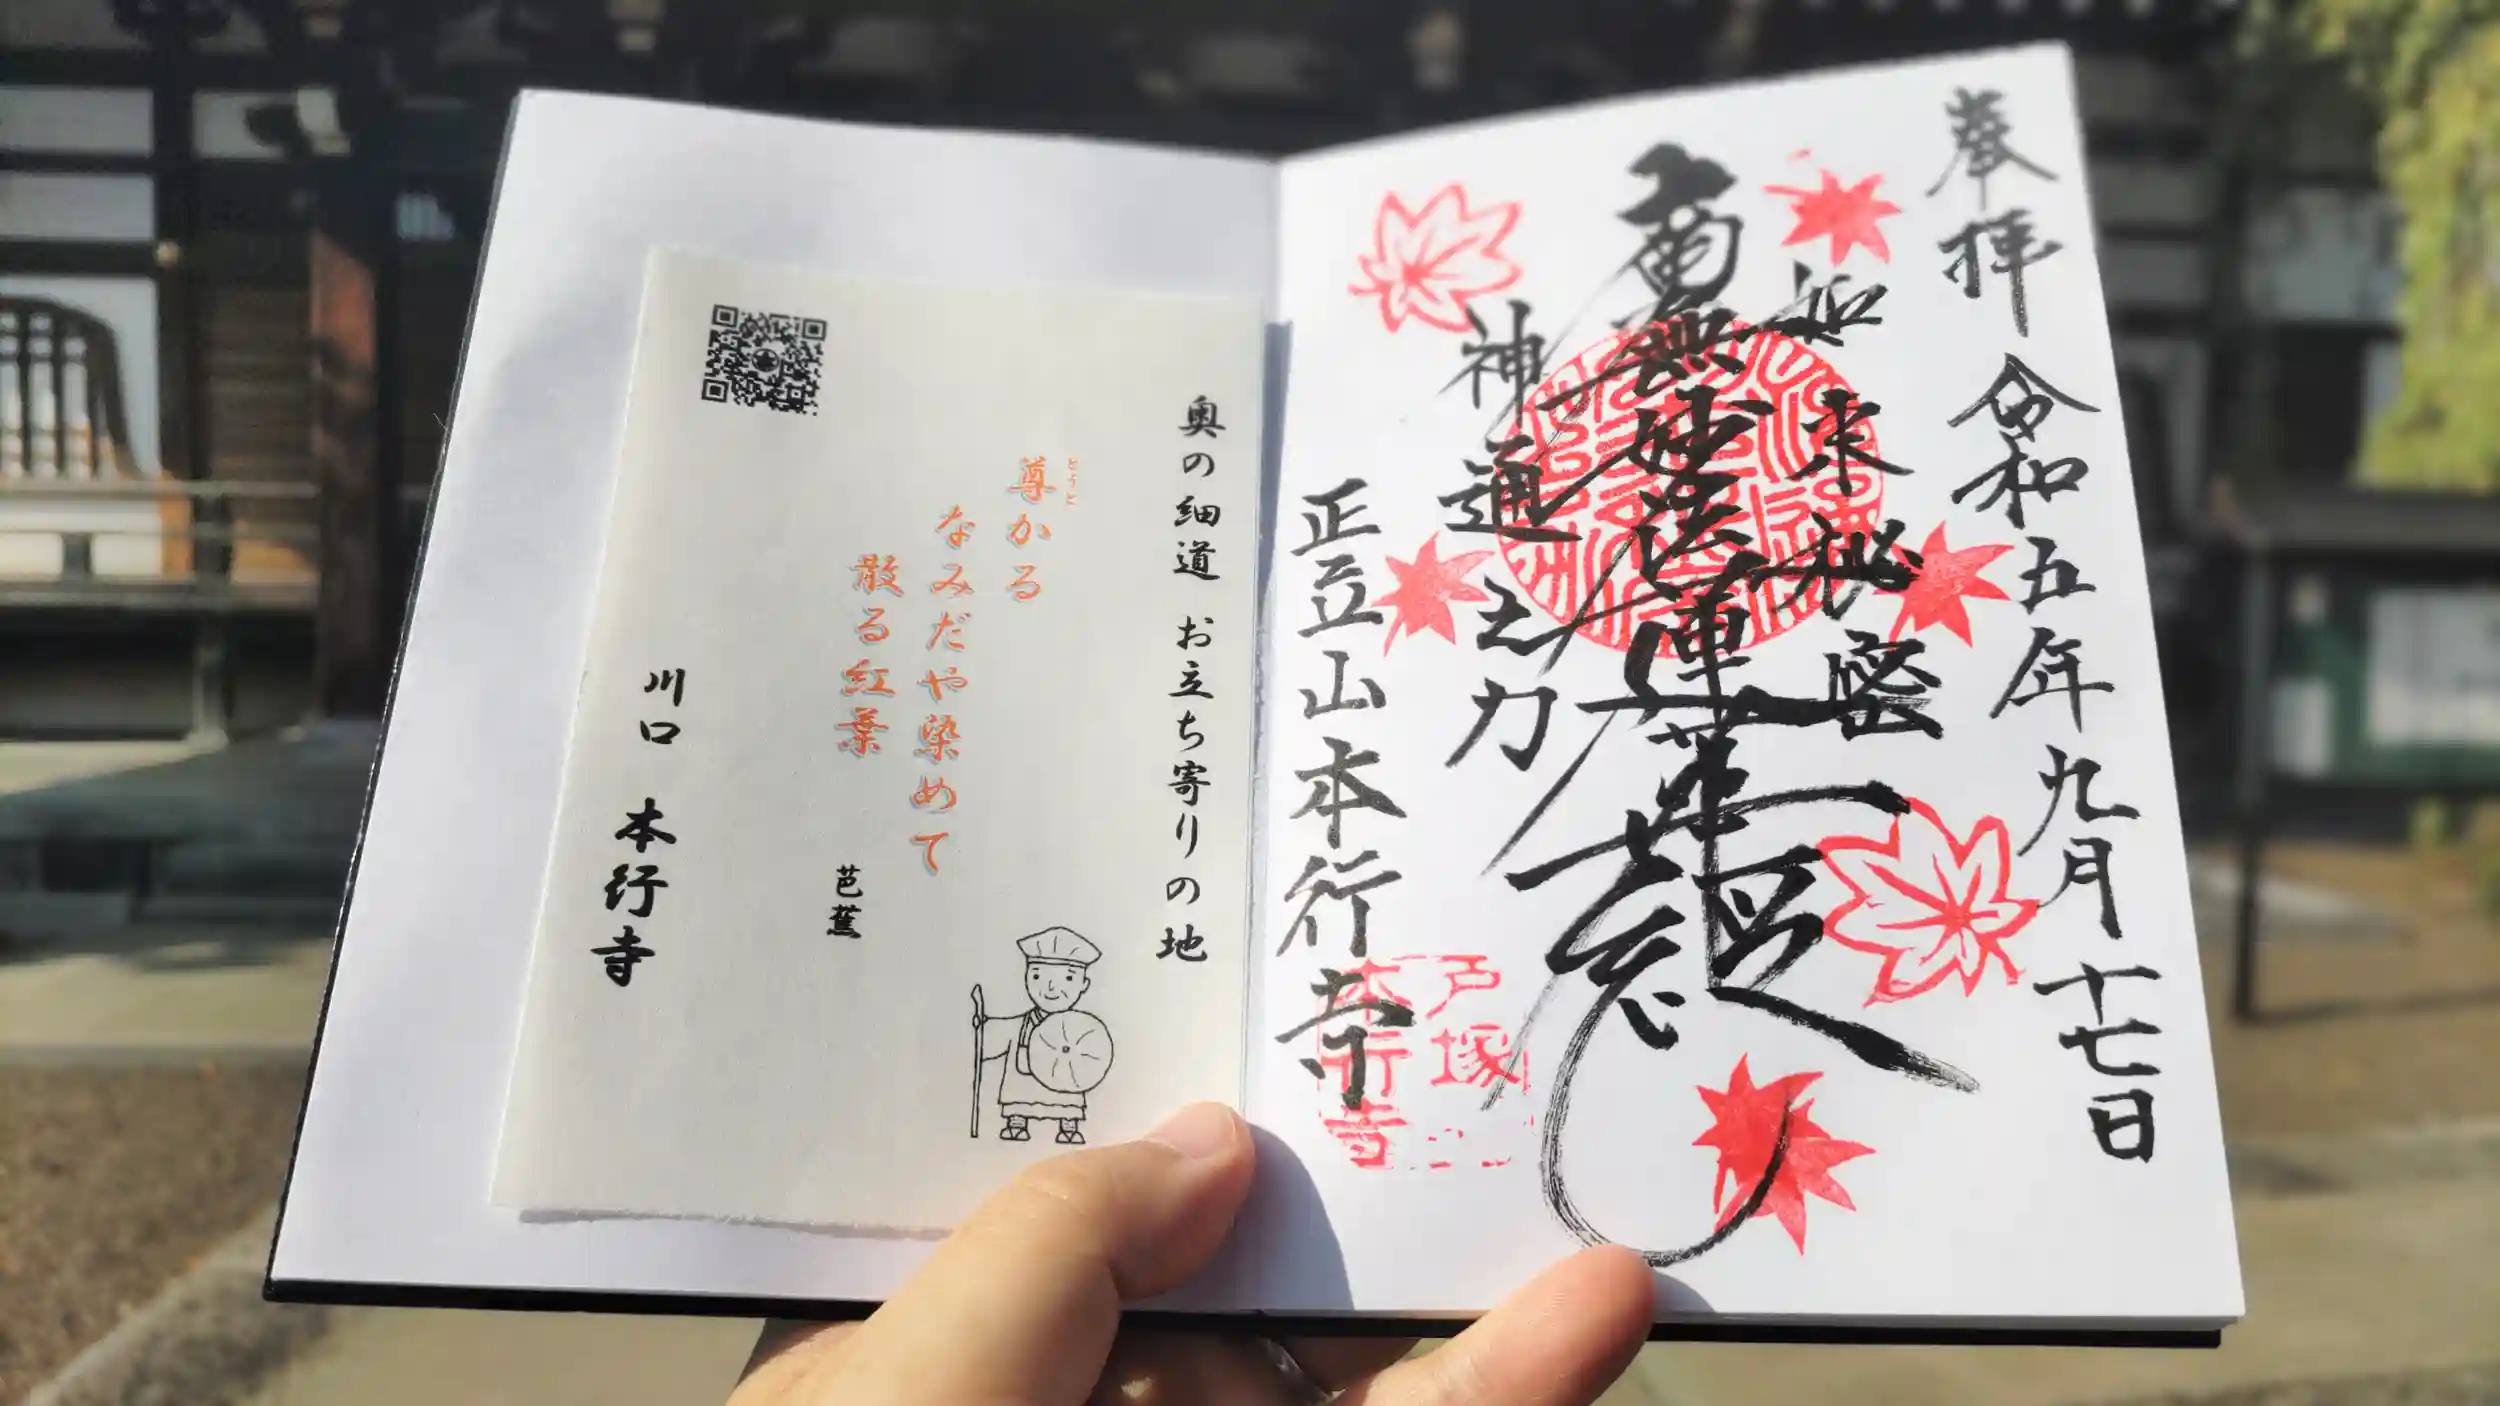 奉拝 令和五年九月十七日
如来秘密
南無妙法蓮華経
神通之力
正立山本行寺
戸塚
本行寺
奥の細道 お立ち寄りの地
とうと
尊かる
なみだや染めて
散る紅葉
芭蕉
川口 本行寺